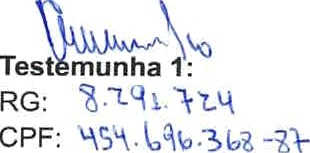 Testemunha 1:
RG: 8.292.724
CPF: 454.696.368-87